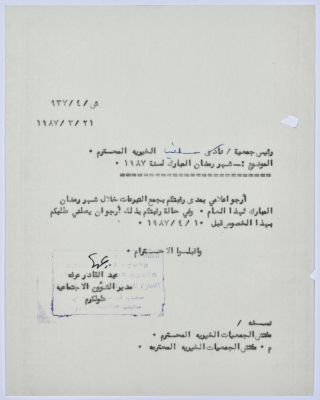 ش/٤/٩٣٧
١٩٨٧/٣/٢١
رئيس جمعية / نادي سلفيت الخيرية المحترم ٠
الموضوع :ـ شهر رمضان المبارك لسنة ١٩٨٧ ٠
ارجو اعلامي بمدى رغبتكم بجمع التبرعات خلال شهر رمضان
المبارك لهذا العام ٠ وفي حالة رغبتكم بذلك أرجو ان يصلني طلبكم
بهذا الخصوص قبل ١٩٨٧/٤/١٠
واقبلوا الاحترام ٠
عبد القادر عرفه
مدير الشؤون الاجتماعية
طولكرم
نسخه /
مفتش الجمعيات الخيرية المحترم ٠
م ٠ مفتش الجمعيات الخيرية المحترمه ٠